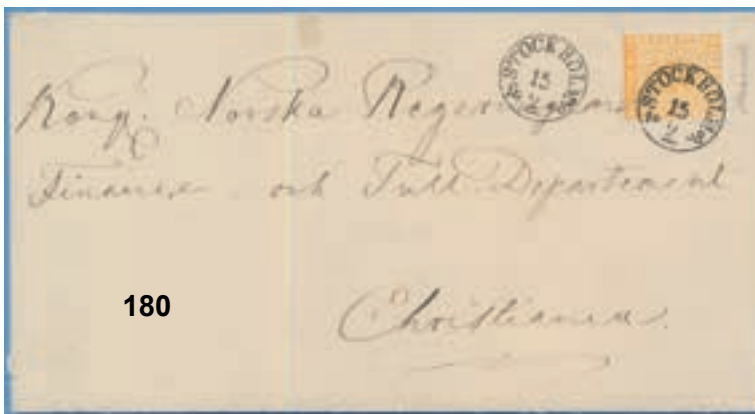 STOCKHOLM
15
2
STOCKHOLM
15
2
Kongl. Norska Regeringens
Finance- och Tull-Departement
180
Christiania.